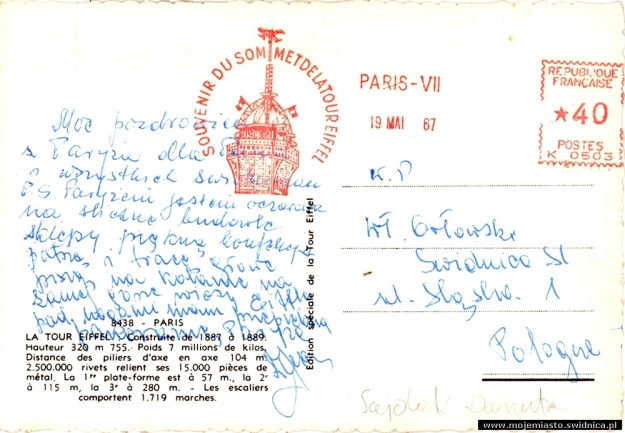 SOUVENIR DU SOMMET DE LA TOUR EIFFEL
PARIS-VII
19 MAI 67
REPUBLIQUE
FRANCAISE
★40
POSTES
K 0503
Moc pozdrowień
z Paryża dla
wszystkich
P.S. Paryżem jestem
na
sklepy piękną konfekcję
patrzę i tracę głowę
piszę na kolanie na
samej górze wieży Eiffla
pod nogami mam
panoramę
8438 - PARIS
LA TOUR EIFFEL : Construite de 1887 à 1889.
Hauteur 320 m 755. Poids 7 millions de kilos.
Distance des piliers d'axe en axe 104 m.
2.500.000 rivets relient ses 15.000 pièces de
métal. La 1re plate-forme est à 57 m., la 2e
à 115 m, la 3e à 280 m. - Les escaliers
comportent 1.719 marches.
Edition spéciale de la Tour Eiffel
K.P
Wł. Orłowski
Świdnica Śl
ul. Śląska 1
Pologne
Sajdak Danuta
www.mojemiasto.swidnica.pl